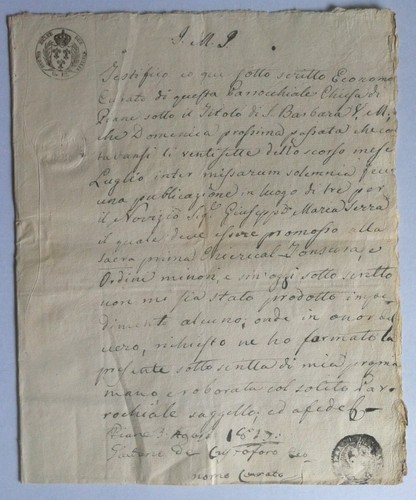 J. M. J.
Testifico io qui sotto scritto Economo
Curato di questa Parrocchiale Chiesa di
Piane sotto il Titolo di S. Barbara V. M.
che Domenica prossima passata che
li ventisette dello scorso mese
Luglio inter missarum solemnia feci
una publicazione in luogo di tre per
il Novizio Sig. Giuseppe Maria Serra
il quale deve essere promosso alla
sacra prima Clerical Tonsura, e
Ordini minori, e sin'oggi sotto scritto
non mi sia stato prodotto impe
dimento alcuno; onde in onor del
vero, richiesto ne ho formato la
presente sotto scritta di mia propria
mano e roborata col solito Par
rochiale suggello; ed a fede
Piane 3 Agosto 1817:
Gaetano De Cristofaro Eco
nomo Curato